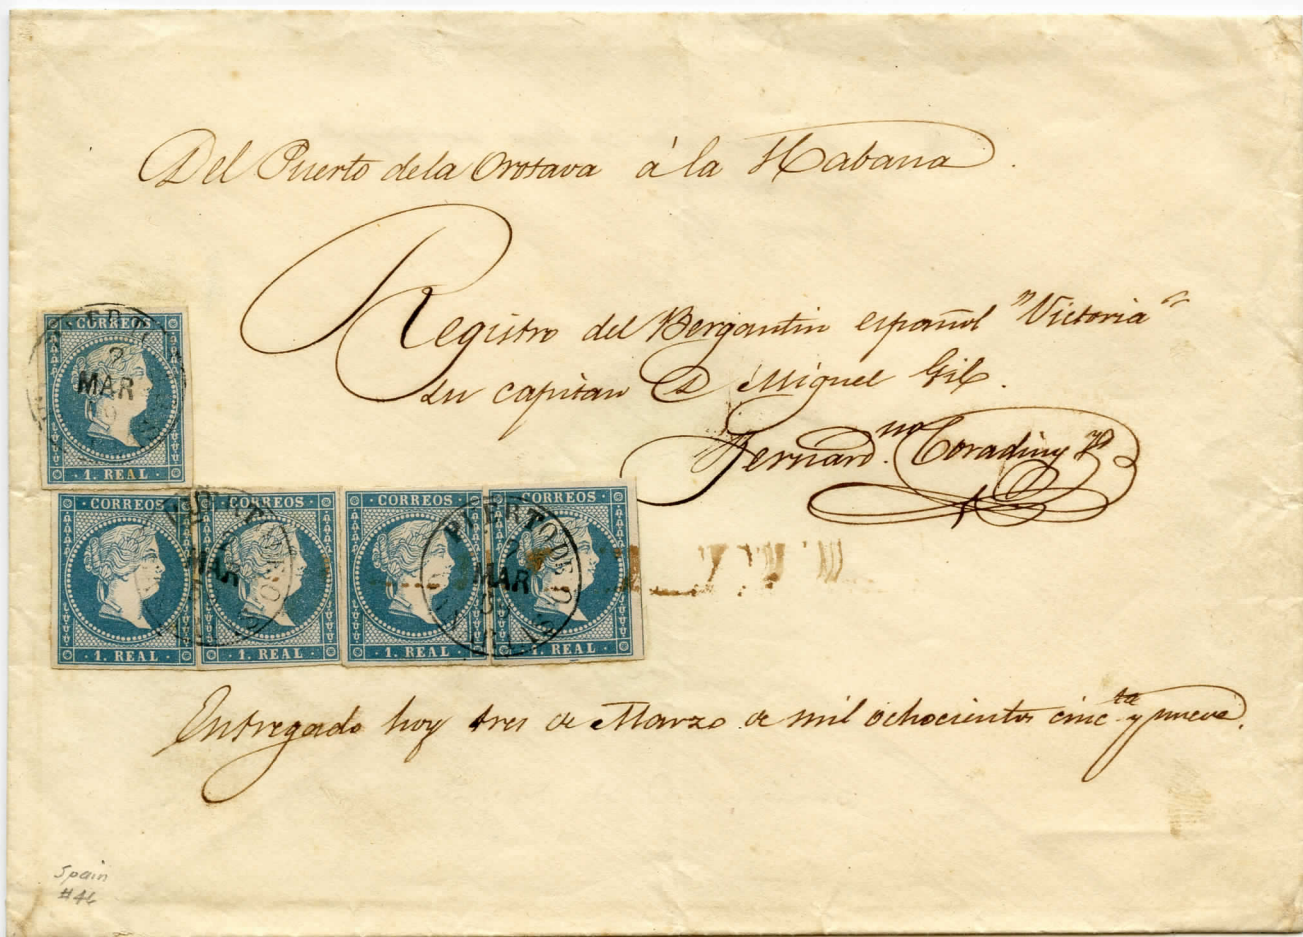 Del Puerto dela Orotava á la Habana.
Registro del Bergantin español "Victoria"
su capitan D Miguel Gil.
Fernand.no
CORREOS
2
MAR
1. REAL
CORREOS
1. REAL
CORREOS
MAR
1. REAL
CORREOS
1. REAL
CORREOS
PUERTO DE
2
MAR
1. REAL
Entregado hoy tres de Marzo de mil ochocientos cinc.ta y nueve.
Spain
#46